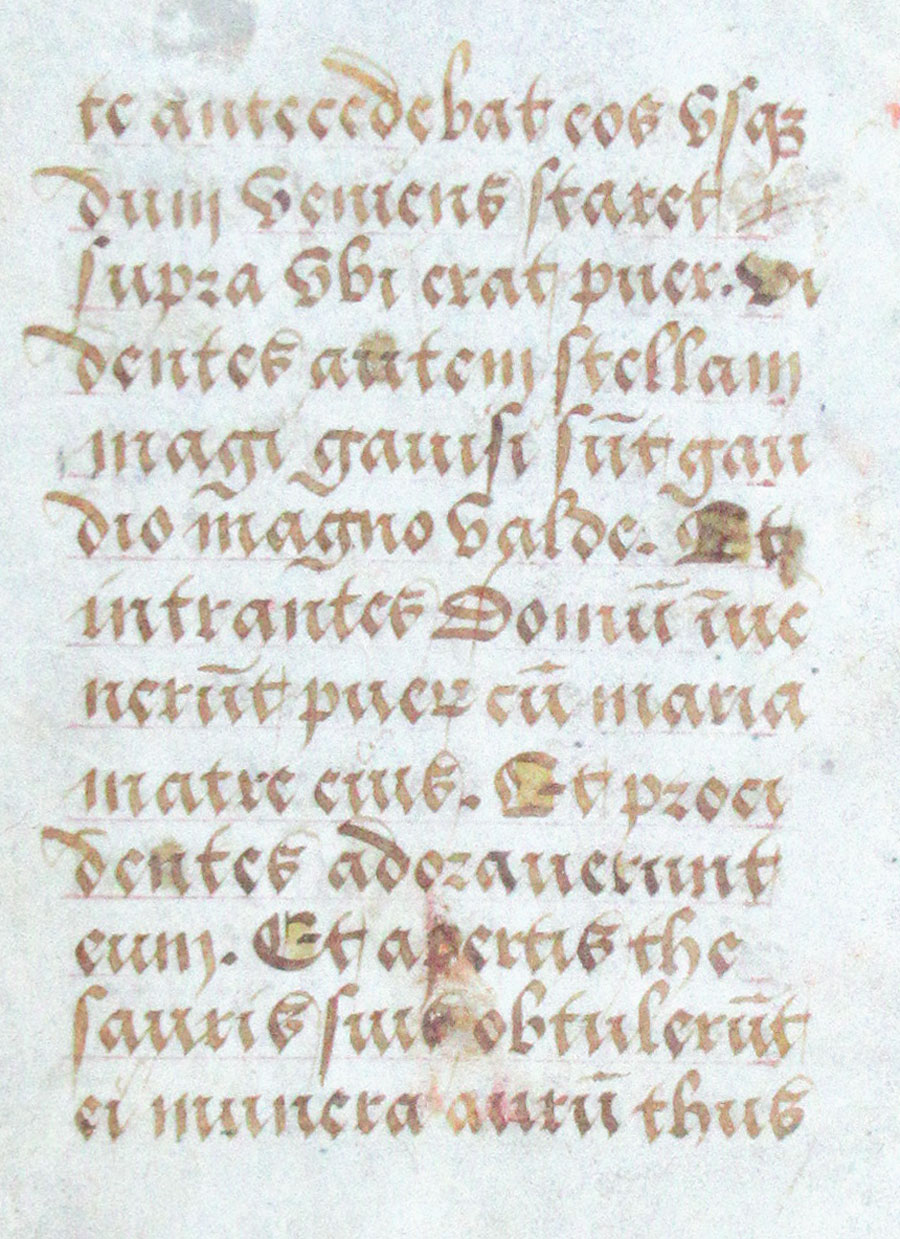 te antecedebat eos vsqꝫ
dum veniens staret
supra vbi erat puer. Vi
dentes autem stellam
magi gauisi sūt gau
dio māgno valde. Et
intrantes domū īue
nerūt puer cū maria
matre eius. Et proci
dentes adorauerunt
eum. Et apertis the
sauris suis obtulerūt
ei munera aurū thus